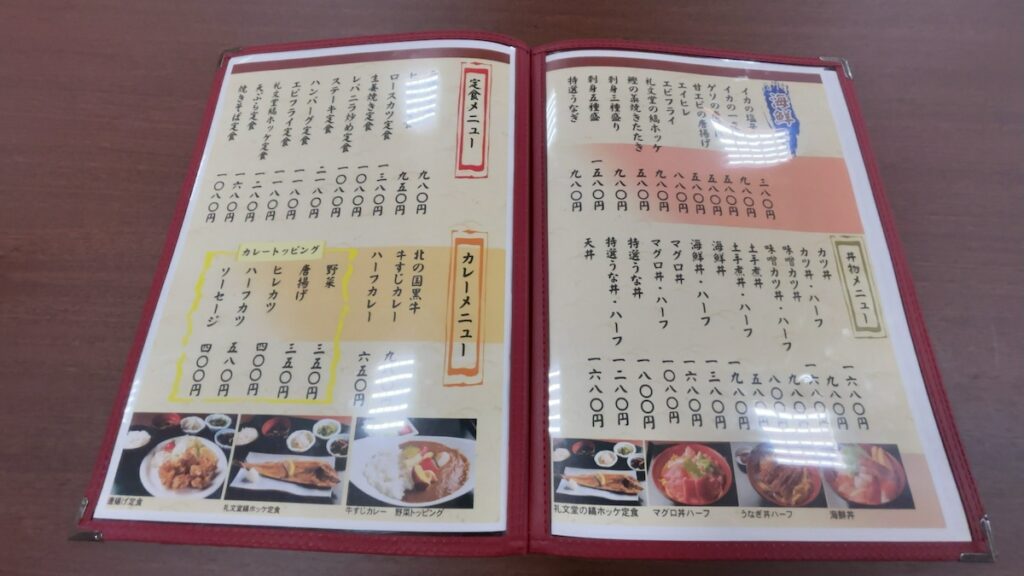 海鮮
イカの塩
イカの一
ゲソの
甘エビの唐揚げ
エイヒレ
エビフライ
礼文堂の縞ホッケ
鰹の藁焼きたたき
刺身三種盛り
刺身五種盛
特選うなぎ
三八〇円
九八〇円
五八〇円
五八〇円
八八〇円
九八〇円
五八〇円
九八〇円
一五八〇円
九八〇円
丼物メニュー
カツ丼
カツ丼・ハーフ
味噌カツ丼
味噌カツ丼・ハーフ
土手煮丼
土手煮丼・ハーフ
海鮮丼
海鮮丼・ハーフ
マグロ丼
マグロ丼・ハーフ
特選うな丼
特選うな丼・ハーフ
天丼
一六八〇円
九八〇円
八〇〇円
五八〇円
九八〇円
一三八〇円
一六八〇円
一〇八〇円
一八〇〇円
一二八〇円
一六八〇円
礼文堂の縞ホッケ定食
マグロ丼ハーフ
うなぎ丼ハーフ
海鮮丼
定食メニュー
ロースカツ定食
生姜焼き定食
レバニラ炒め定食
ステーキ定食
ハンバーグ定食
エビフライ定食
礼文堂縞ホッケ定食
天ぷら定食
焼きそば定食
九八〇円
九五〇円
一三八〇円
一〇八〇円
一〇八〇円
二一八〇円
一一八〇円
一一八〇円
一二八〇円
一六八〇円
一〇八〇円
カレーメニュー
北の国黒牛
牛すじカレー
ハーフカレー 六五〇円
カレートッピング
野菜 三五〇円
唐揚げ 三五〇円
ヒレカツ 四〇〇円
ハーフカツ 五八〇円
ソーセージ 四〇〇円
唐揚げ定食
礼文堂縞ホッケ定食
牛すじカレー 野菜トッピング